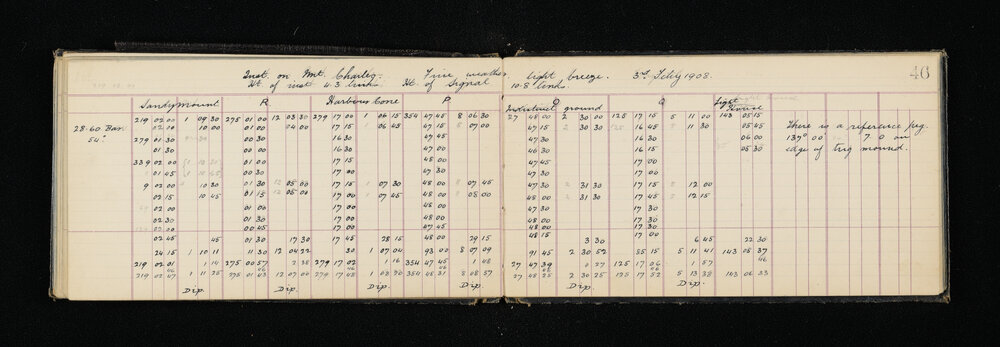 46
Inst. on Mt. Charles. Fine weather, light breeze. 3rd Feby 1908.
Ht. of inst. 4.3 links Ht. of Signal 10.8 links.
Sandymount R Harbour Cone P Indistinct ground Q Light House
219 02 00 1 09 30 275 01 00 12 03 30 279 17 00 1 06 15 354 47 45 8 06 30 27 48 00 2 30 00 125 17 15 5 11 00 143 05 15
28.60 Bar. 02 10 10 00 01 00 04 00 17 15 1 06 45 47 15 8 07 00 47 15 2 30 30 125 16 45 5 11 30 05 45 There is a reference peg.
54° 279 01 30 00 30 16 30 47 30 47 30 16 30 06 00 137° 00 7.0 on
01 30 00 30 16 30 47 00 46 30 16 15 05 30 edge of trig mound.
339 02 00 01 00 17 15 48 00 47 45 17 00
01 45 00 30 17 00 47 30 47 30 17 00
9 02 00 10 30 01 30 12 05 00 17 15 1 07 30 48 00 8 07 45 47 30 2 31 30 17 15 5 12 00
02 15 10 45 01 15 12 05 01 17 00 1 07 45 48 00 8 08 00 48 00 2 31 30 17 30 5 12 15
02 00 01 00 17 00 48 00 47 45 17 00
02 30 01 30 17 00 48 00 48 00 17 30
02 00 00 45 17 00 47 45 48 00 17 30
02 45 45 01 30 17 30 17 45 28 15 48 00 29 15 48 15 3 30 17 00 6 45 22 30
24 15 1 10 11 11 30 12 04 22 30 1 07 04 93 00 8 07 09 91 45 2 30 52 85 15 5 11 41 143 05 37
219 02 01 1 14 275 00 57 2 38 279 17 02 1 16 354 47 45 1 48 27 47 39 27 125 17 06 1 57 46
219 02 47 1 11 25 275 01 43 12 07 00 279 17 48 1 08 20 354 48 31 8 08 57 27 48 25 2 30 25 125 17 52 5 13 38 143 06 23
Dip. Dip. Dip. Dip. Dip. Dip.